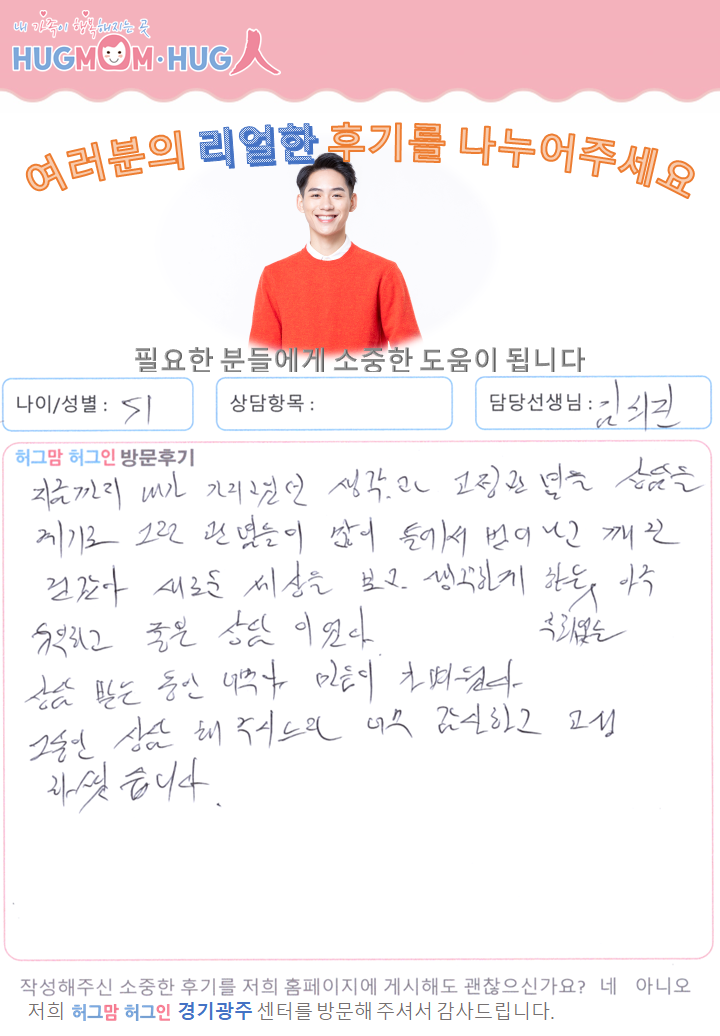 내 가족이 행복해지는 곳
HUGMOM·HUG人
여러분의 리얼한 후기를 나누어주세요
필요한 분들에게 소중한 도움이 됩니다
나이/성별 : 51
상담항목 :
담당선생님 : 김희진
허그맘 허그인 방문후기
지금까지 내가 가지고 있던 생각. 고정관념들 상담을
계기로 그런 관념들이 많이 틀에서 벗어나고 깨진
것 같아 새로운 세상을 보고. 생각하게 하는 아주
유익하고 좋은 상담이었다.
상담 받는 동안 너무나 믿음이
그동안 상담 해 주시느라 너무 감사하고 고생
하셨습니다.
작성해주신 소중한 후기를 저희 홈페이지에 게시해도 괜찮으신가요? 네 아니오
저희 허그맘 허그인 경기광주 센터를 방문해 주셔서 감사드립니다.